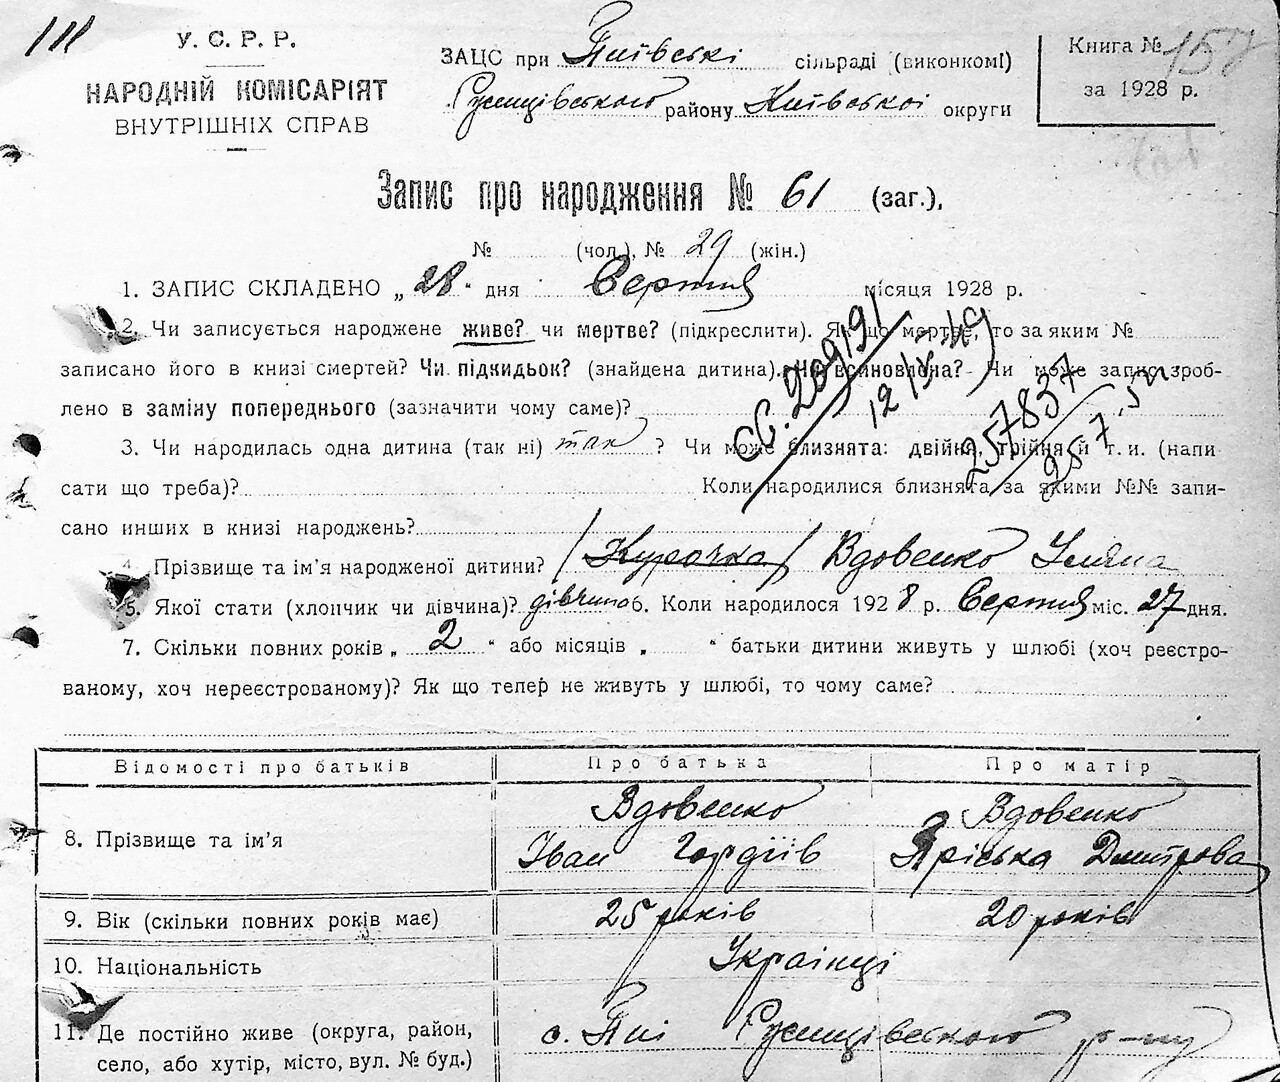 111
У. С. Р. Р.
НАРОДНІЙ КОМІСАРІЯТ
ВНУТРІШНІХ СПРАВ
ЗАЦС при сільраді (виконкомі)
району Київської округи
Книга № 157
за 1928 р.
Запис про народження № 61 (заг.),
№ (чол.), № 29 (жін.)
1. ЗАПИС СКЛАДЕНО „ 28 " дня Серпня місяця 1928 р.
2. Чи записується народжене живе? чи мертве? (підкреслити). Як що мертве, то за яким №
записано його в книзі смертей? Чи підкидьок? (знайдена дитина). Чи всиновлена? Чи може запис зроб-
лено в заміну попереднього (зазначити чому саме)?
СС. 209191
12/X-49
257837
3. Чи народилась одна дитина (так ні) так ? Чи може близнята: двійня, трійня й т. и. (напи
сати що треба)? Коли народилися близнята за якими №№ запи-
сано инших в книзі народжень?
4. Прізвище та ім'я народженої дитини? (Курочка) Вдовенко Уляна
5. Якої стати (хлопчик чи дівчина)? дівчина 6. Коли народилося 1928 р. Серпня міс. 27 дня.
7. Скільки повних років „ 2 " або місяців „ " батьки дитини живуть у шлюбі (хоч реєстро-
ваному, хоч нереєстрованому)? Як що тепер не живуть у шлюбі, то чому саме?
Відомості про батьків Про батька Про матір
8. Прізвище та ім'я Вдовенко Іван Гордіїв Вдовенко Пріська Дмитрова
9. Вік (скільки повних років має) 25 років 20 років
10. Національність Українці
11. Де постійно живе (округа, район, с. р-ну
село, або хутір, місто, вул. № буд.)